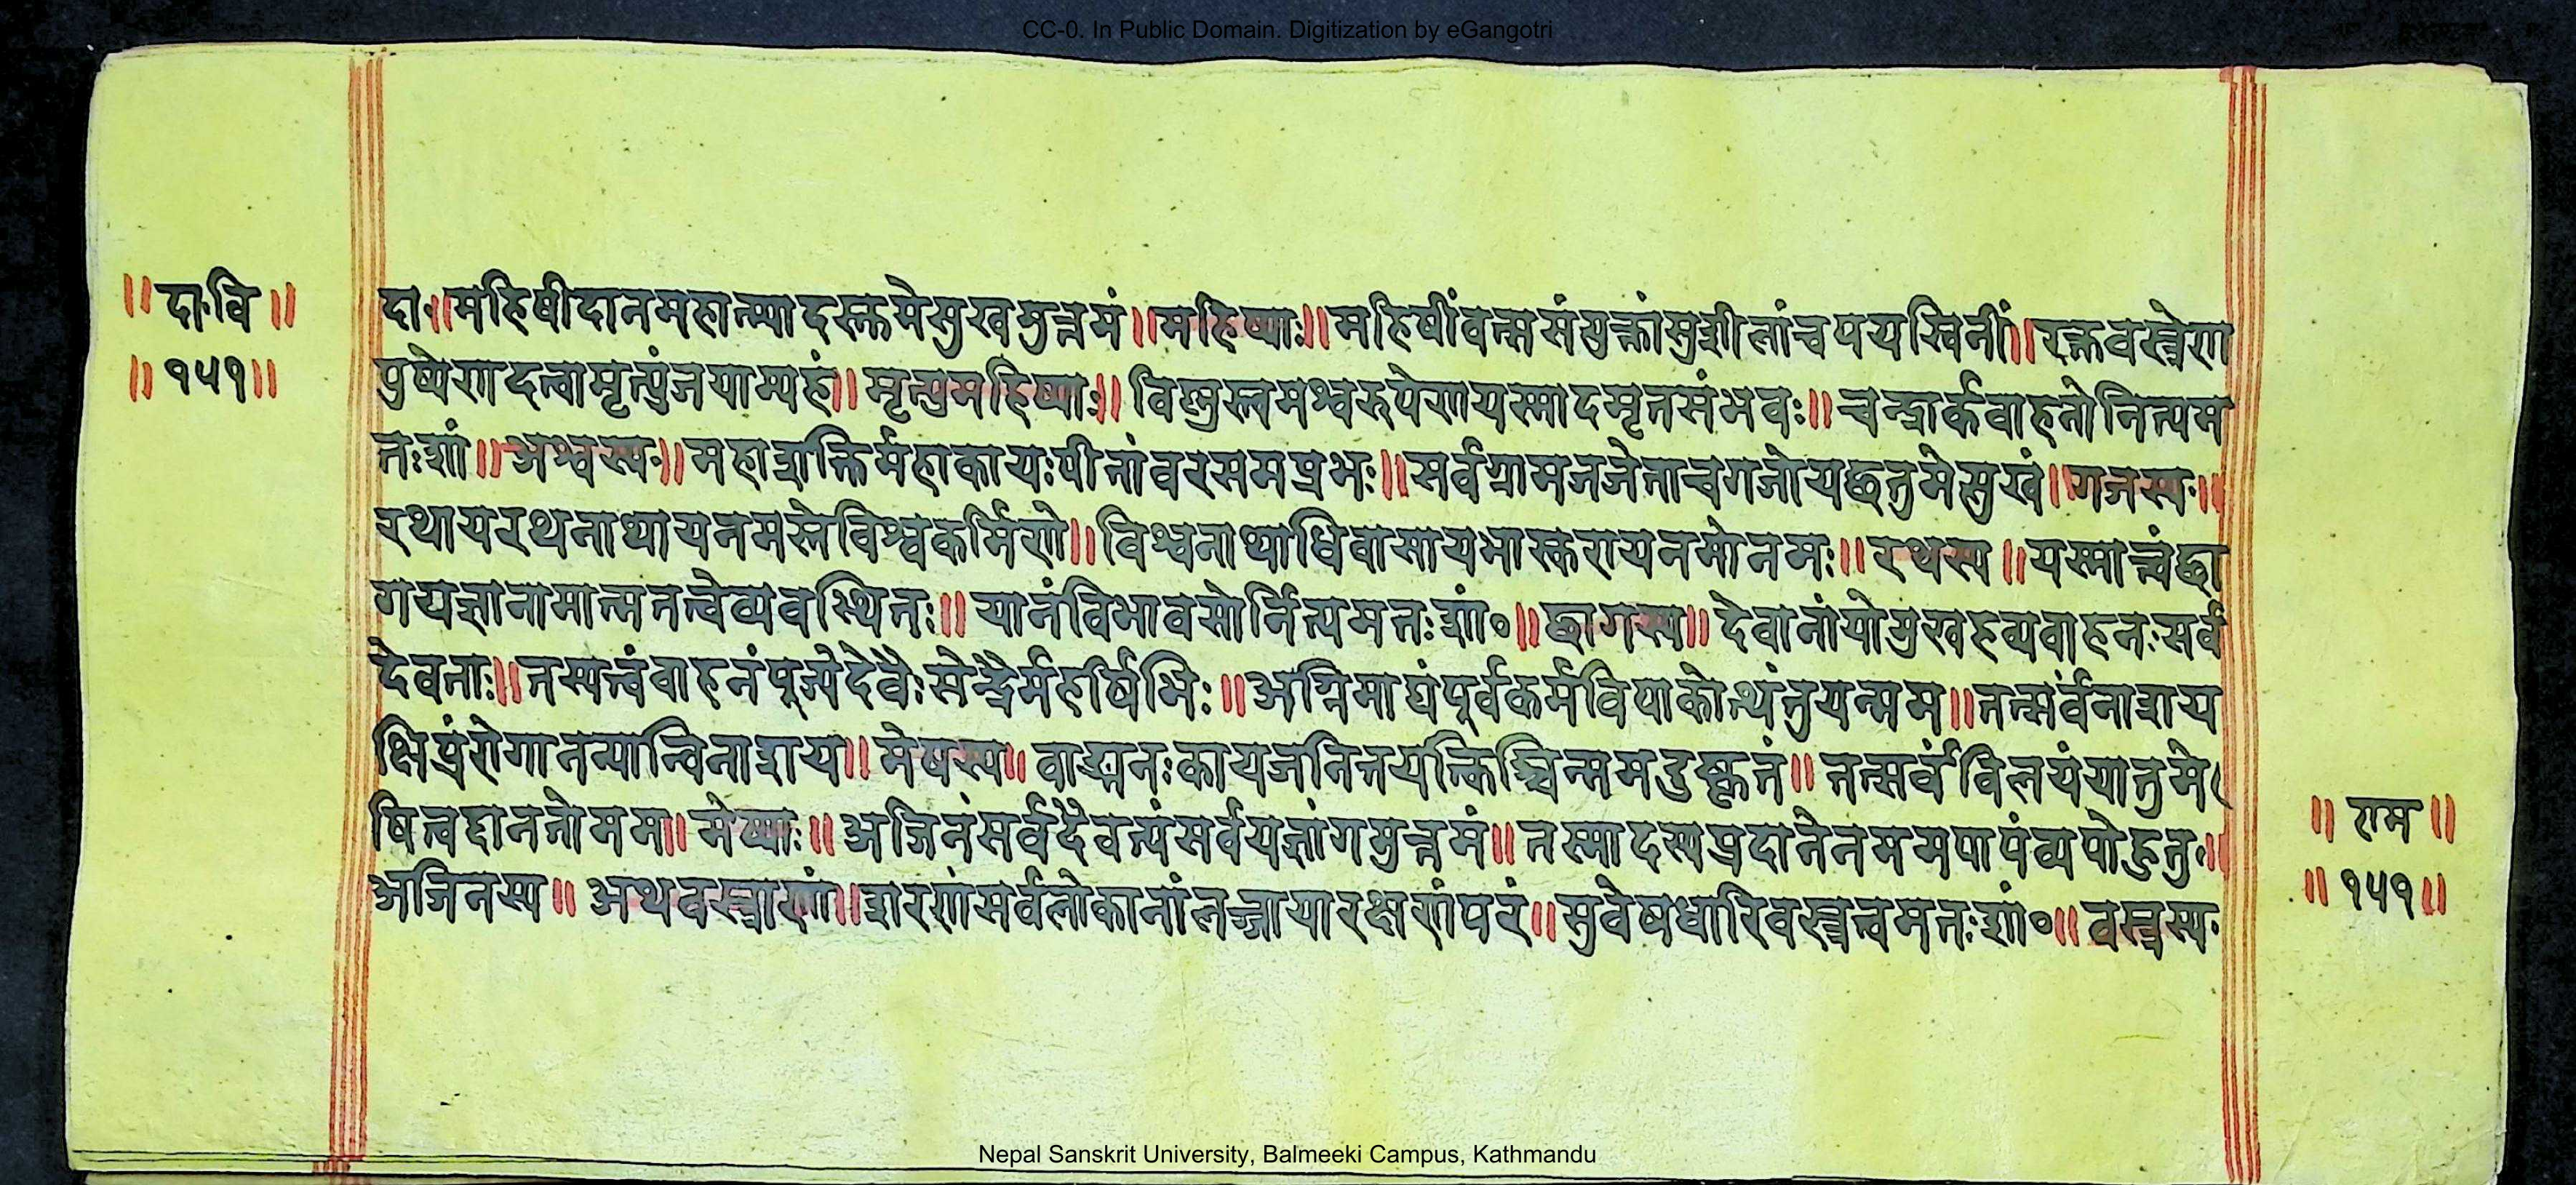 CC-0. In Public Domain. Digitization by eGangotri
॥दा॰वि॥
॥१५१॥
दा॰॥महिषीदानमहात्म्यादस्तुमेसुखमुत्तमं॥महिष्याः॥महिषींवत्ससंयुक्तांसुशीलांचपयस्विनीं॥रक्तवस्त्रेण
पुष्पेणदत्वामृत्युंजयाम्यहं॥मृत्युमहिष्याः॥विष्णुस्त्वमश्वरूपेणयस्मादमृतसंभवः॥चन्द्रार्कवाहनोनित्यम
तःशां॥अश्वस्य॰॥महाशक्तिर्महाकायःपीतांवरसमप्रभः॥सर्वग्रामजजेताचगजोयछतुमेसुखं॥गजस्य॰॥
रथायरथनाथायनमस्तेविश्वकर्मिणे॥विश्वनाथाधिवासायभास्करायनमोनमः॥रथस्य॥यस्मात्त्वंछा
गयज्ञानामात्मनत्वेव्यवस्थितः॥यानंविभावसोर्नित्यमतःशां॰॥छागस्य॥देवानांयोमुखहव्यवाहनःसर्व
देवताः॥तस्यत्वंवाहनंपूज्येदेवैःसेन्द्रैर्महर्षिभिः॥अग्निमाद्यंपूर्वकर्मविपाकोत्थंतुयन्मम॥तत्सर्वंनाशय
क्षिप्रंरोगानन्यान्विनाशय॥मेषस्य॥वाङ्मनःकायजनितयत्किञ्चिन्ममदुष्कृतं॥तत्सर्वंविलयंयातुमे
षित्वद्दानतोमम॥मेष्याः॥अजिनंसर्वदैवत्यंसर्वयज्ञांगमुत्तमं॥तस्मादस्यप्रदानेनममपापंव्यपोहतु॰॥
अजिनस्य॥अथवस्त्राणां॥शरणंसर्वलोकानांलज्जायारक्षणंपरं॥सुवेषधारिवस्त्रत्वमतःशां॰॥वस्त्रस्य॰
॥राम॥
॥१५१॥
Nepal Sanskrit University, Balmeeki Campus, Kathmandu